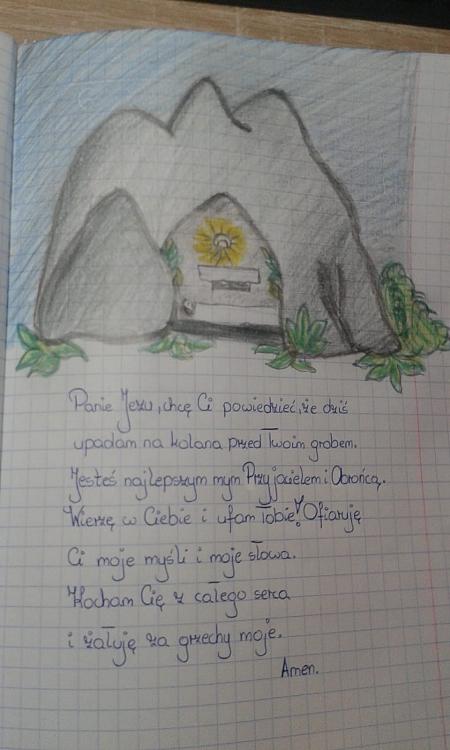 Panie Jezu, chcę Ci powiedzieć, że dziś
upadam na kolana przed Twoim grobem.
Jesteś najlepszym mym Przyjacielem i Obrońcą.
Wierzę w Ciebie i ufam Tobie! Ofiaruję
Ci moje myśli i moje słowa.
Kocham Cię z całego serca
i żałuję za grzechy moje.
Amen.